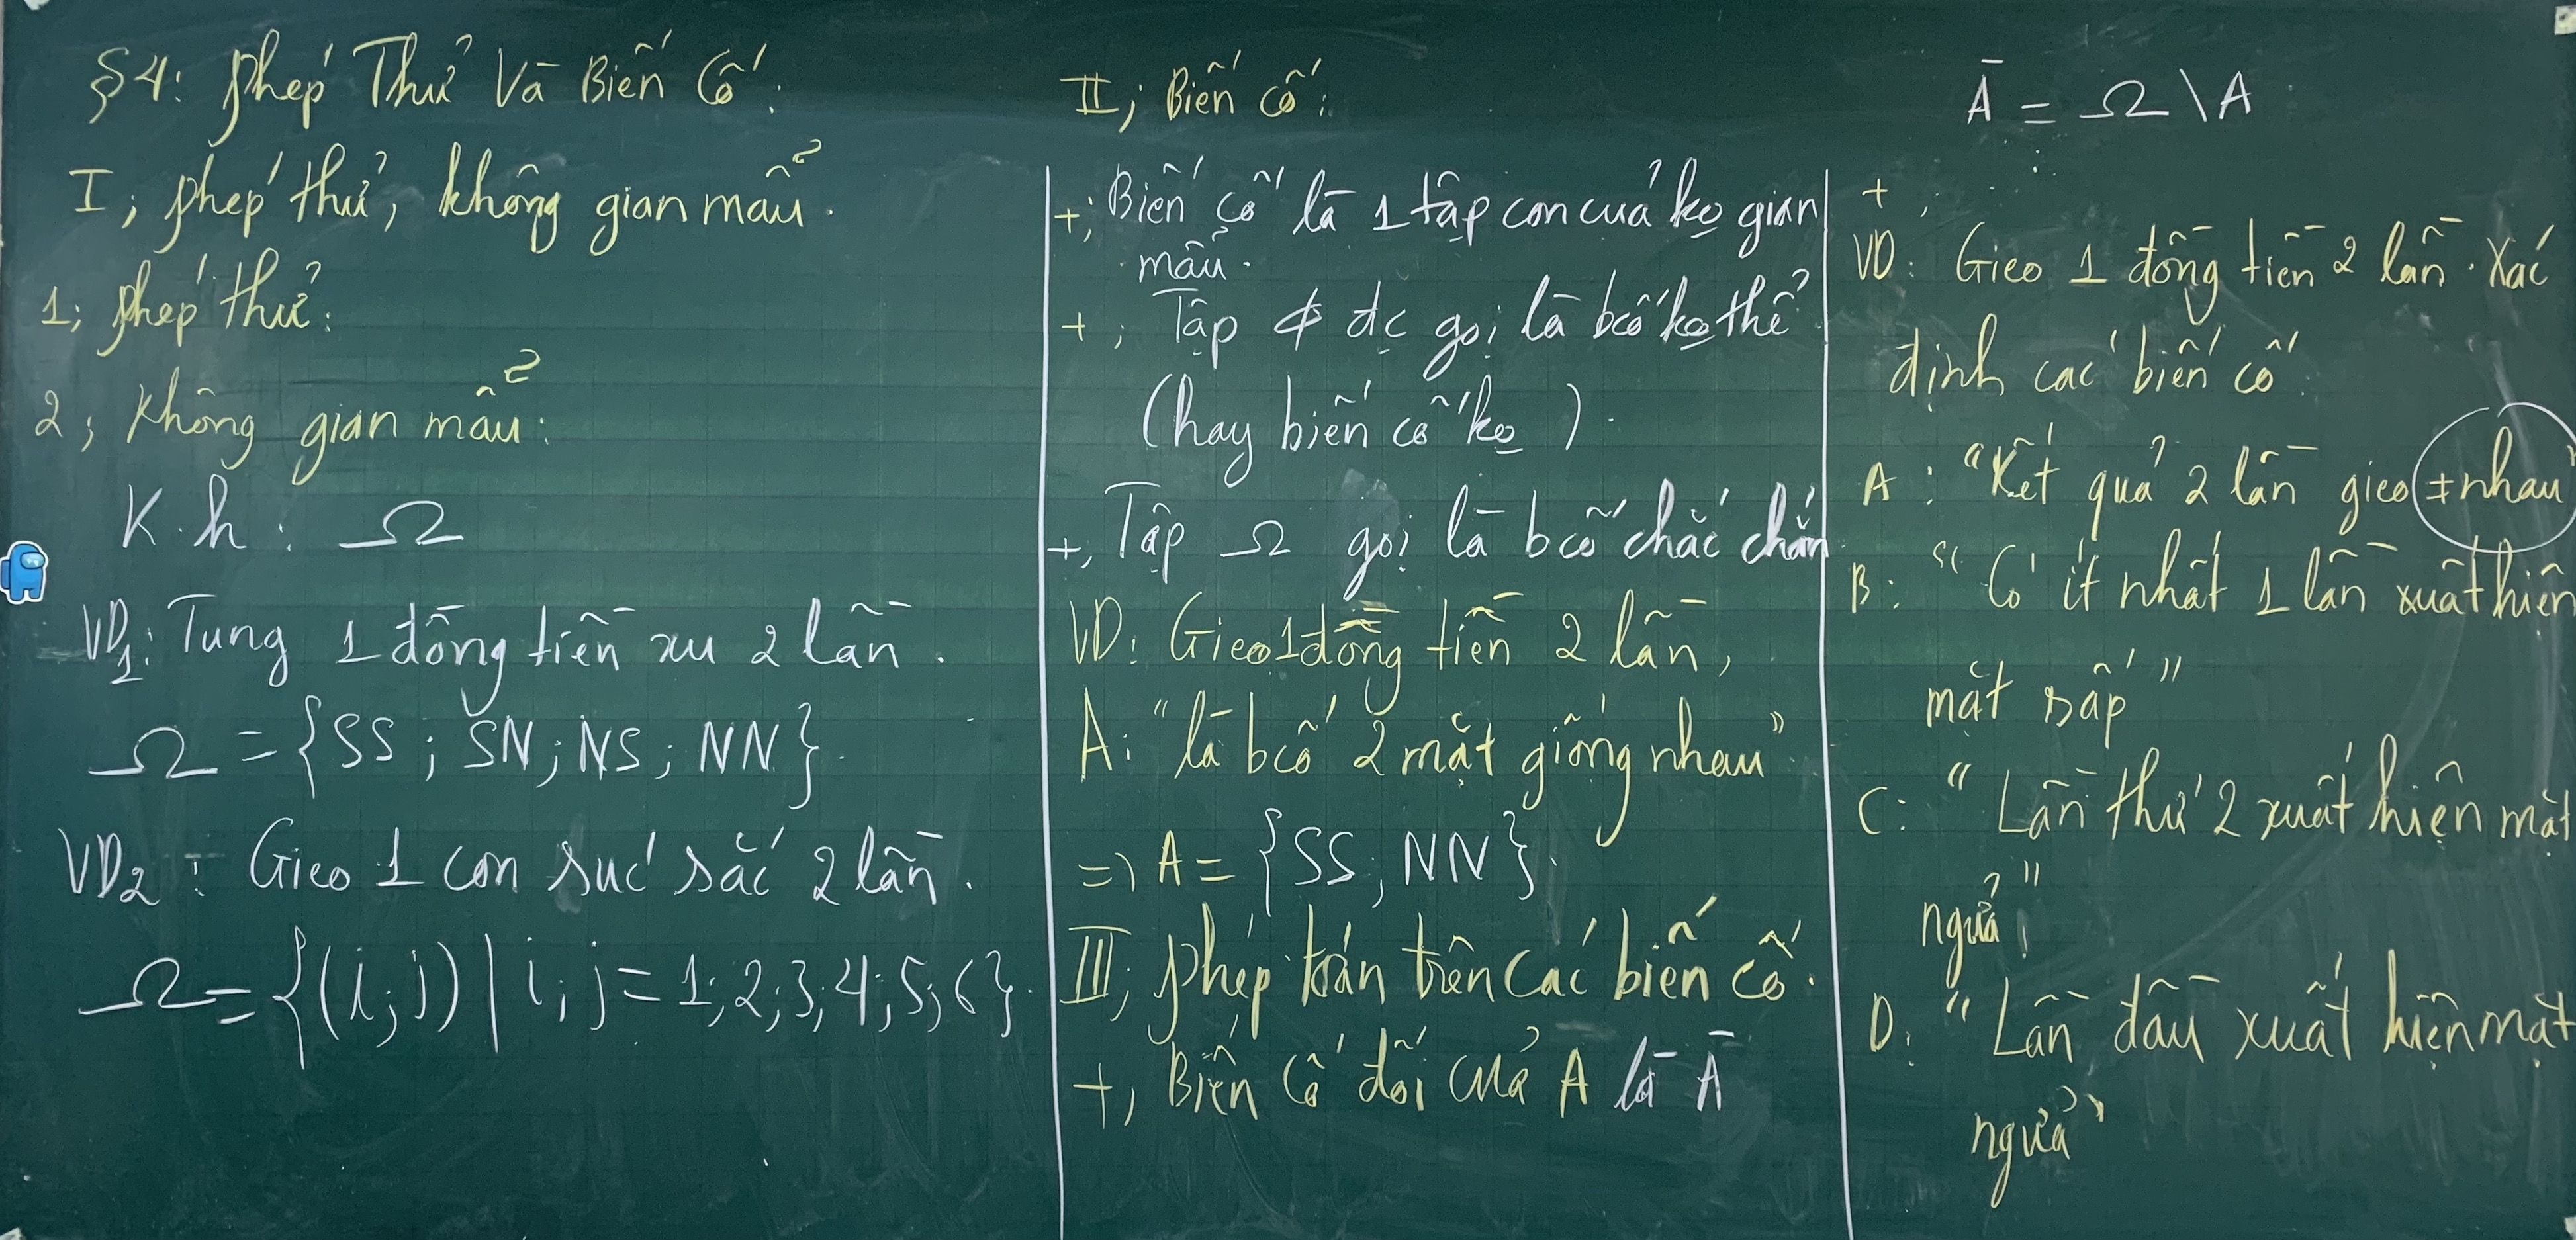 §4: Phép Thử Và Biến Cố:
I, phép thử, không gian mẫu.
1, phép thử:
2, Không gian mẫu:
K.h: Ω
VD1: Tung 1 đồng tiền xu 2 lần.
Ω = {SS; SN; NS; NN}.
VD2: Gieo 1 con súc sắc 2 lần.
Ω = {(i;j) | i,j = 1;2;3;4;5;6}.
II, Biến cố:
+, Biến cố là 1 tập con của ko gian
mẫu.
+, Tập ϕ đc gọi là bcố ko thể
(hay biến cố ko).
+, Tập Ω gọi là bcố chắc chắn
VD: Gieo 1 đồng tiền 2 lần,
A: "là bcố 2 mặt giống nhau"
=> A = {SS; NN}.
III, phép toán trên các biến cố.
+, Biến cố đối của A là Ā
Ā = Ω \ A
+,
VD: Gieo 1 đồng tiền 2 lần. Xác
định các biến cố:
A: "Kết quả 2 lần gieo ≠ nhau"
B: "Có ít nhất 1 lần xuất hiện
mặt sấp"
C: "Lần thứ 2 xuất hiện mặt
ngửa"
D: "Lần đầu xuất hiện mặt
ngửa"